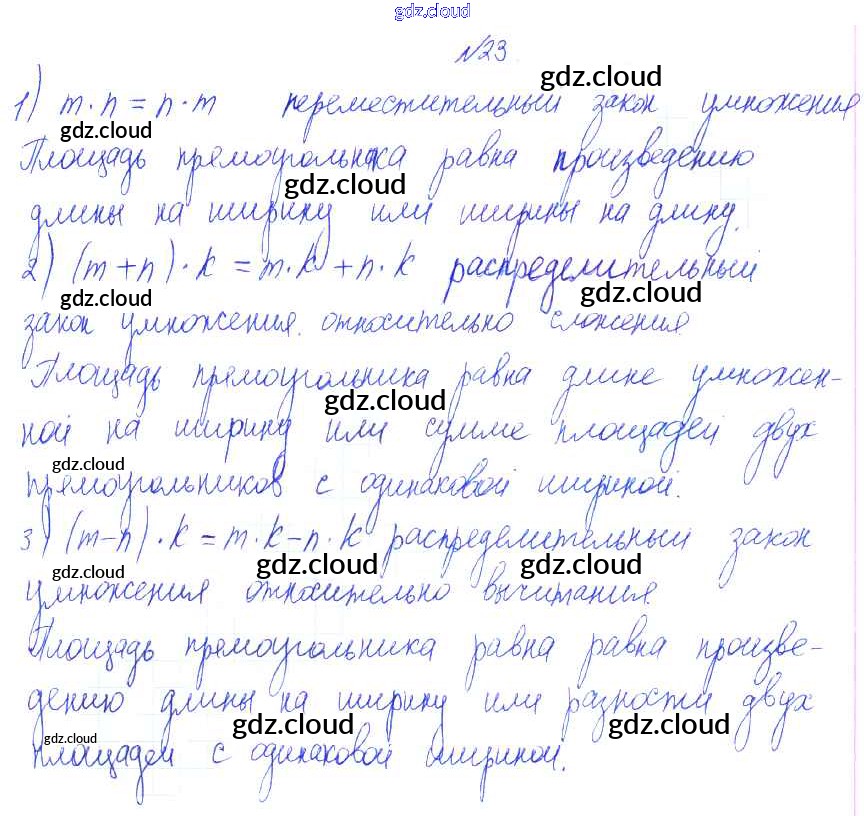 gdz.cloud
№23
gdz.cloud
1) m·n = n·m переместительный закон умножения
gdz.cloud
Площадь прямоугольника равна произведению
gdz.cloud
длины на ширину или ширины на длину.
2) (m+n)·k = m·k+n·k распределительный
gdz.cloud gdz.cloud
закон умножения относительно сложения.
Площадь прямоугольника равна длине умножен-
gdz.cloud
ной на ширину или сумме площадей двух
gdz.cloud
прямоугольников с одинаковой шириной.
3) (m-n)·k = m·k-n·k распределительный закон
gdz.cloud gdz.cloud gdz.cloud
умножения относительно вычитания.
Площадь прямоугольника равна равна произве-
дению длины на ширину или разности двух
gdz.cloud gdz.cloud gdz.cloud
площадей с одинаковой шириной.